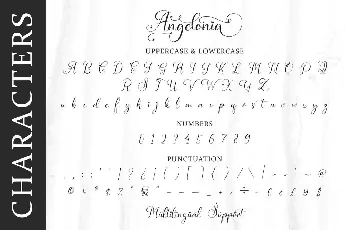 CHARACTERS
Angelonia
UPPERCASE & LOWERCASE
A B C D E F G H I J K L M N O P Q
R S T U V W X Y Z
a b c d e f g h i j k l m n o p q r s t u v w x y z
NUMBERS
0 1 2 3 4 5 6 7 8 9
PUNCTUATION
Multilingual Support